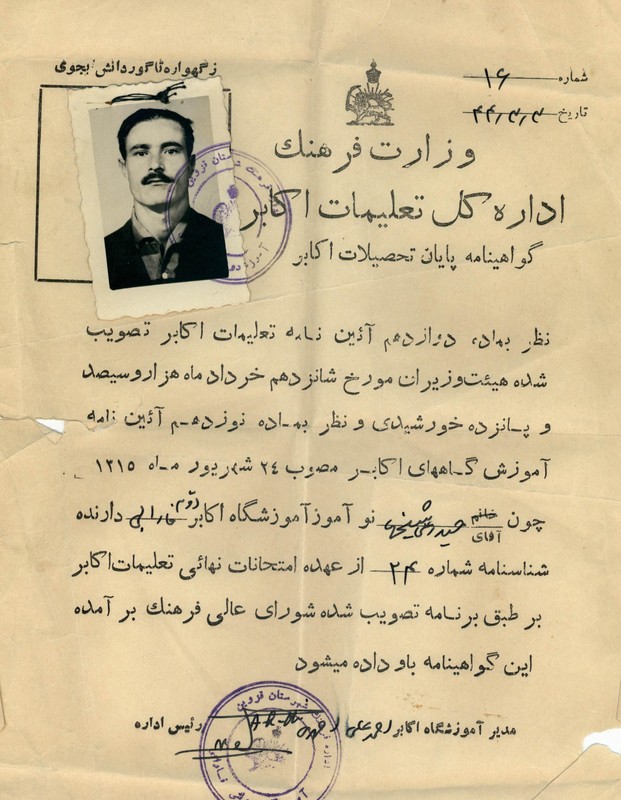 ز گهواره تا گور دانش بجوی
شماره ۱۶
تاریخ ۴۴/۳/۳
وزارت فرهنگ
اداره کل تعلیمات اکابر
گواهینامه پایان تحصیلات اکابر
نظر بماده دوازدهم آئین نامه تعلیمات اکابر تصویب
شده هیئت‌وزیران مورخ شانزدهم خرداد ماه هزار و سیصد
و پانزده خورشیدی و نظر بماده نوزدهم آئین نامه
آموزش گاههای اکابر مصوب ۲۴ شهریور ماه ۱۳۱۵
چون خانم آقای نو آموز آموزشگاه اکابر دارنده
شناسنامه شماره ۲۴ از عهده امتحانات نهائی تعلیمات اکابر
بر طبق برنامه تصویب شده شورای عالی فرهنگ بر آمده
این گواهینامه باو داده میشود
مدیر آموزشگاه اکابر رئیس اداره
شهرستان قزوین